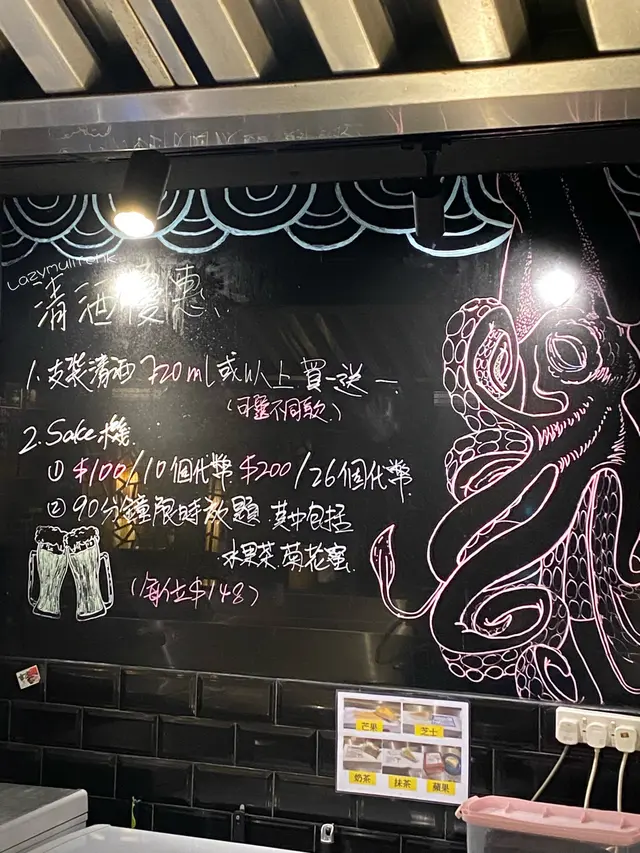 Lazymuiiehk
清酒優惠
1. 支裝清酒 720ml 或以上 買一送一
(可選不同款)
2. Sake機
① $100/10個代幣 $200/26個代幣
② 90分鐘限時放題 其中包括
水果茶.菊花蜜
(每位$148)
芒果 芝士
奶茶 抹茶 蘋果